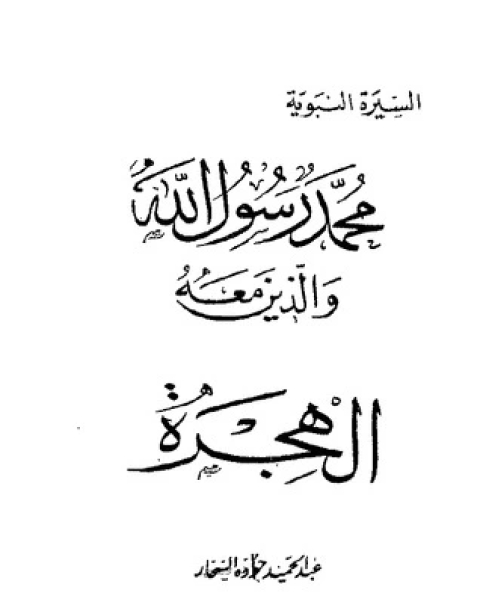 السيرة النبوية
محمد رسول الله
والذين معه
الهجرة
عبد الحميد جودة السحار